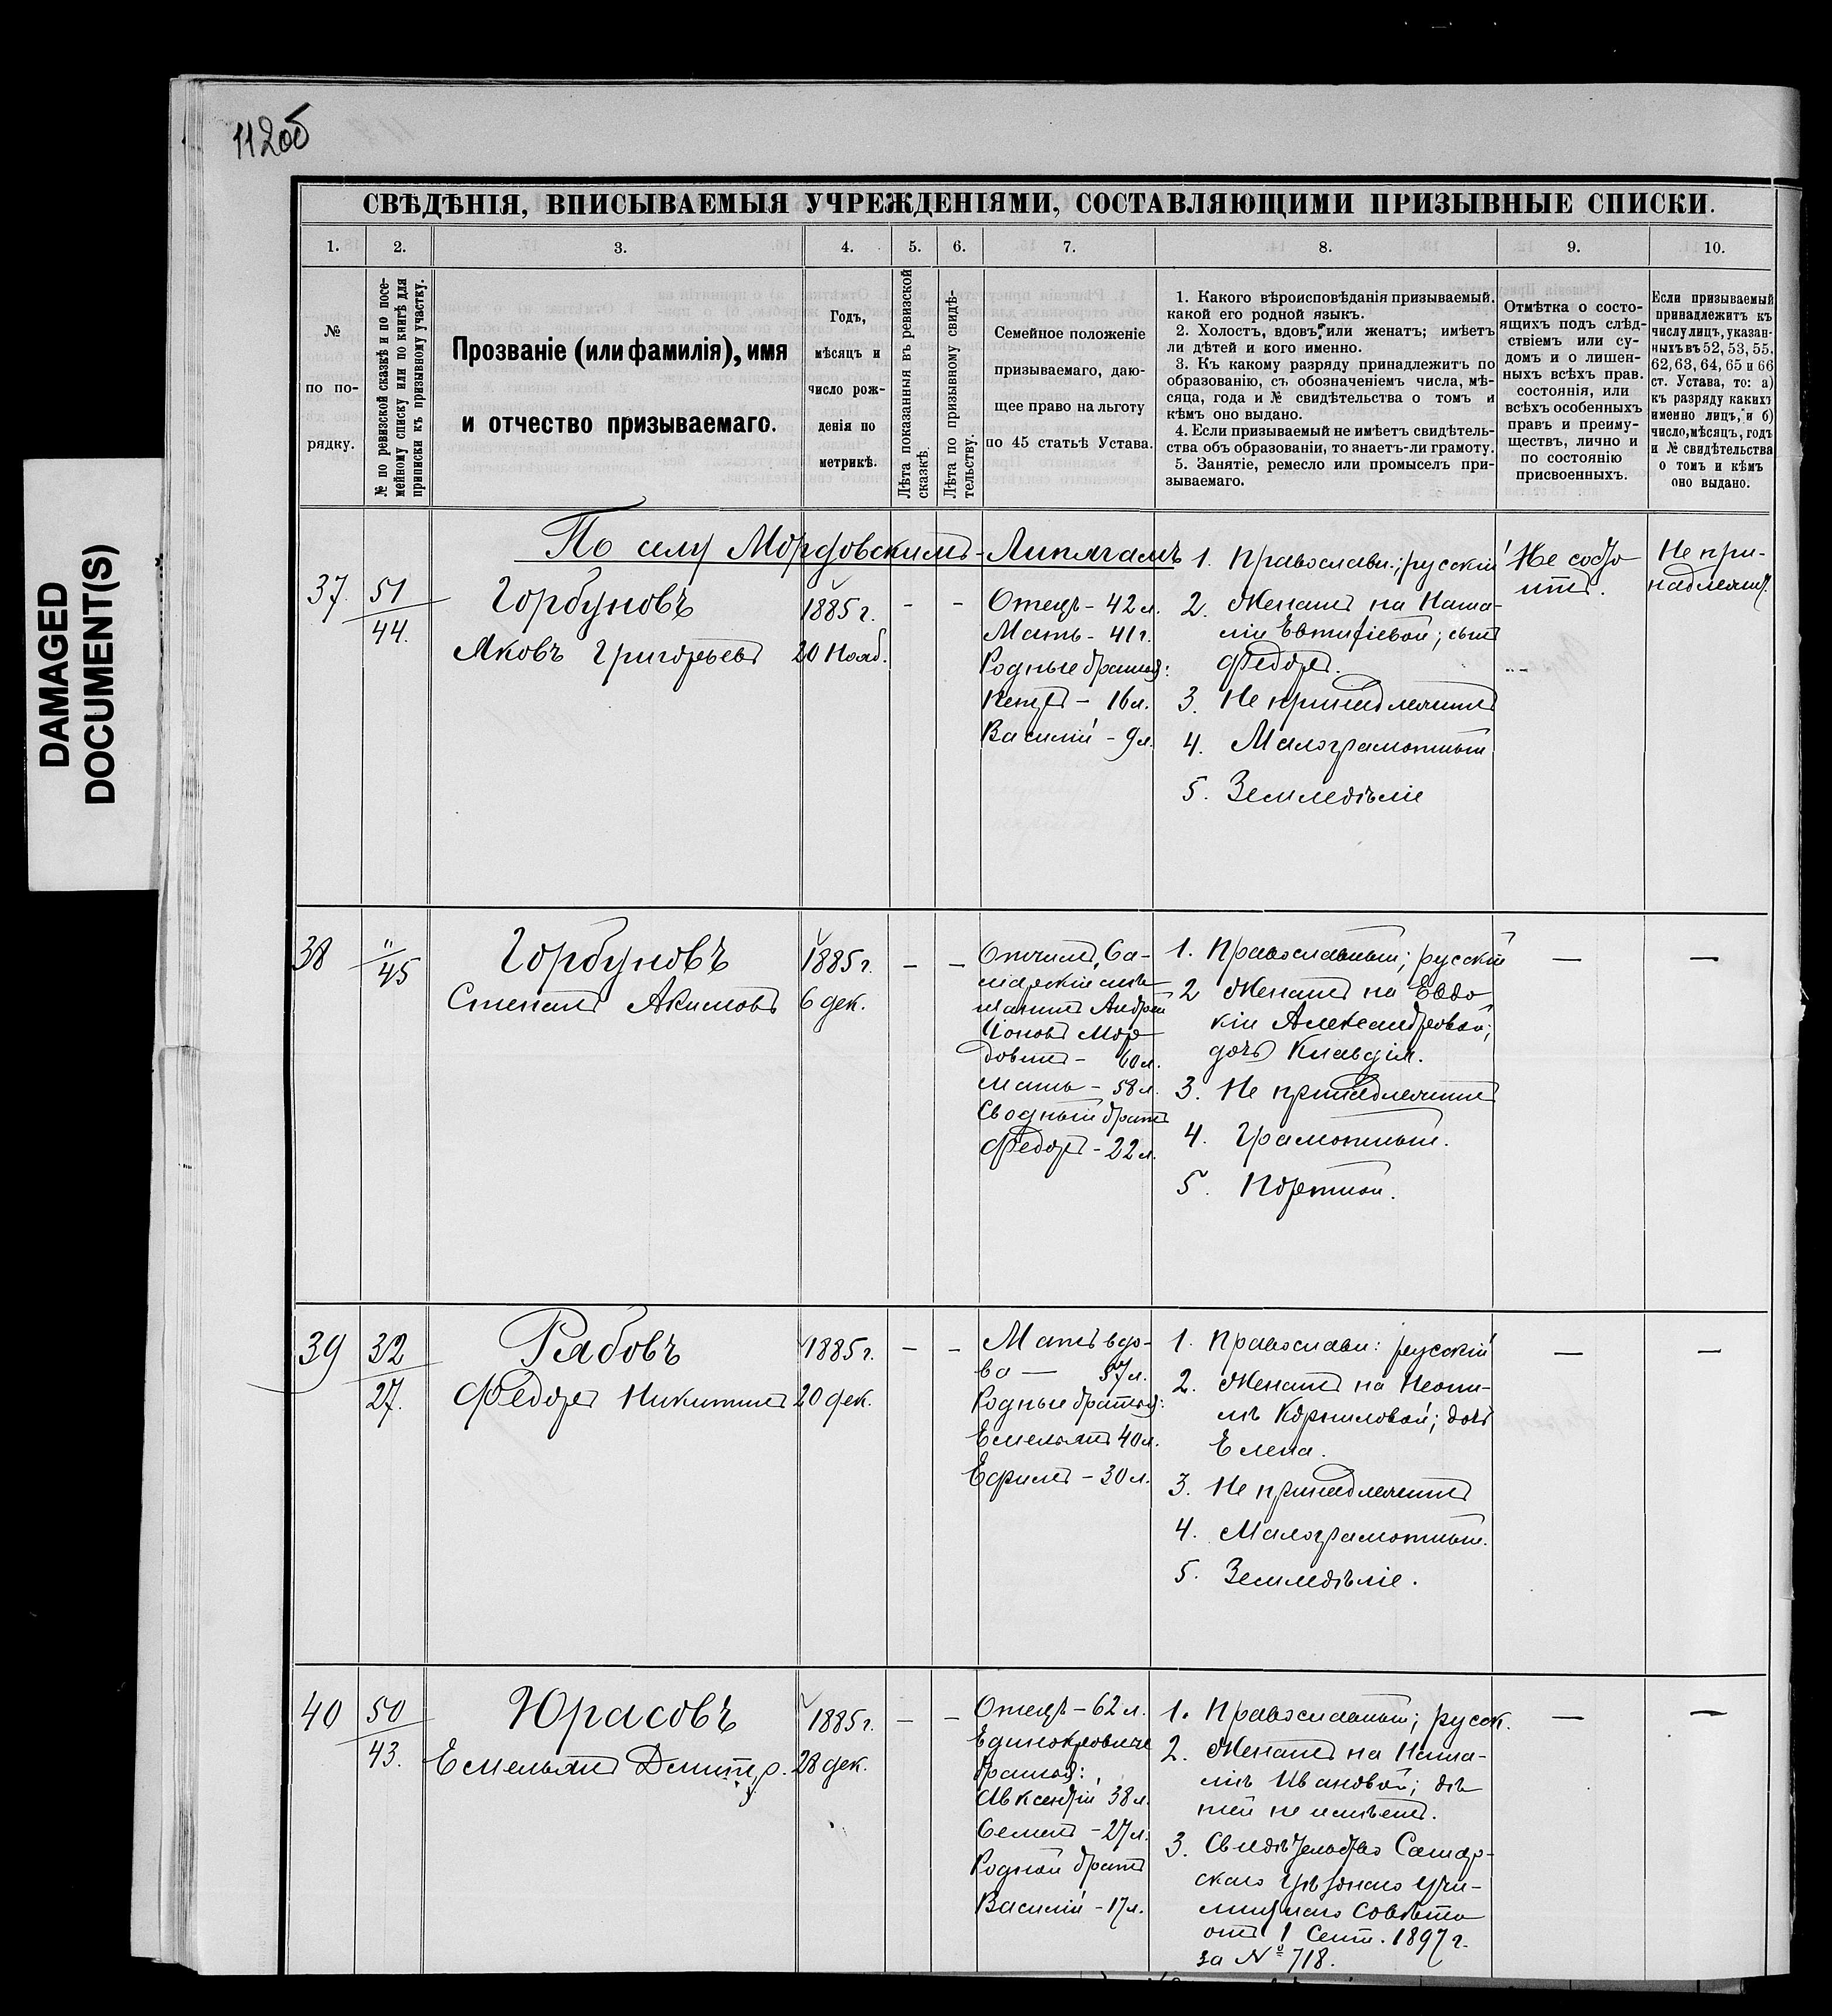 112об
DAMAGED
DOCUMENT(S)
СВѢДѢНІЯ, ВПИСЫВАЕМЫЯ УЧРЕЖДЕНІЯМИ, СОСТАВЛЯЮЩИМИ ПРИЗЫВНЫЕ СПИСКИ.
1. 2. 3. 4. 5. 6. 7. 8. 9. 10.
№
по по-
рядку.
№ по ревизской сказкѣ и по посе-
мейному списку или по книгѣ для
приписки къ призывному участку.
Прозваніе (или фамилія), имя
и отчество призываемаго.
Годъ,
мѣсяцъ и
число рож-
денія по
метрикѣ.
Лѣта показанныя въ ревизской
сказкѣ.
Лѣта по призывному свидѣ-
тельству.
Семейное положеніе
призываемаго, даю-
щее право на льготу
по 45 статьѣ Устава.
1. Какого вѣроисповѣданія призываемый.
какой его родной языкъ.
2. Холостъ, вдовъ, или женатъ; имѣетъ
ли дѣтей и кого именно.
3. Къ какому разряду принадлежитъ по
образованію, съ обозначеніемъ числа, мѣ-
сяца, года и № свидѣтельства о томъ и
кѣмъ оно выдано.
4. Если призываемый не имѣетъ свидѣтель-
ства объ образованіи, то знаетъ-ли грамоту.
5. Занятіе, ремесло или промыселъ при-
зываемаго.
Отмѣтка о состо-
ящихъ подъ слѣд-
ствіемъ или су-
домъ и о лишен-
ныхъ всѣхъ прав.
состоянія, или
всѣхъ особенныхъ
правъ и преиму-
ществъ, лично и
по состоянію
присвоенныхъ.
Если призываемый
принадлежитъ къ
числу лицъ, указан-
ныхъ въ 52, 53, 55,
62, 63, 64, 65 и 66
ст. Устава, то: а)
къ разряду какихъ
именно лицъ, и б)
число, мѣсяцъ, годъ
и № свидѣтельства
о томъ и кѣмъ
оно выдано.
По селу Мордовскимъ-Липягамъ
37.
51
44.
Горбуновъ
Яковъ Григорьевъ
1885 г.
20 Нояб.
-
-
Отецъ - 42 л.
Мать - 41 г.
Родные братья:
Петръ - 16 л.
Василій - 9 л.
1. Православн.; русскій
2. Женатъ на Ната-
ліи Евтифіевой; сынъ
Федоръ.
3. Не принадлежитъ
4. Малограмотный
5. Земледѣліе
Не состо
итъ.
Не при-
надлежит.
38
"
45
Горбуновъ
Степанъ Акимовъ
1885 г.
6 дек.
-
-
Отчимъ, Са-
марскій мѣ-
щанинъ Андрей
Іоновъ Мор-
довинъ - 60 л.
Мать - 58 л.
Сводный братъ
Федоръ - 22 л.
1. Православный; русскій
2 Женатъ на Евдо
кіи Александровой;
дочь Клавдія.
3. Не принадлежитъ
4. Грамотный.
5. Портной.
—
—
39
32
27.
Рябовъ
Федоръ Никитинъ
1885 г.
20 дек.
-
-
Мать вдо-
ва — 57 л.
Родные братья:
Емельянъ 40 л.
Ефимъ - 30 л.
1. Православн: русскій
2. Женатъ на Неони-
лѣ Корниловой; дочь
Елена.
3. Не принадлежитъ
4. Малограмотный.
5. Земледѣліе.
—
—
40
50
43.
Юрасовъ
Емельянъ Дмитр.
1885 г.
28 дек.
-
-
Отецъ - 62 л.
Единокровные
братья:
Авксентій 38 л.
Семенъ - 27 л.
Родной братъ
Василій - 17 л.
1. Православный; русск.
2. Женатъ на Ната-
ліѣ Ивановой; дѣ
тей не имѣетъ.
3. Свидѣтельство Самар-
скаго Уѣзднаго Учи-
лищнаго Совѣта
отъ 1 Сент. 1897 г.
за № 718.
—
—